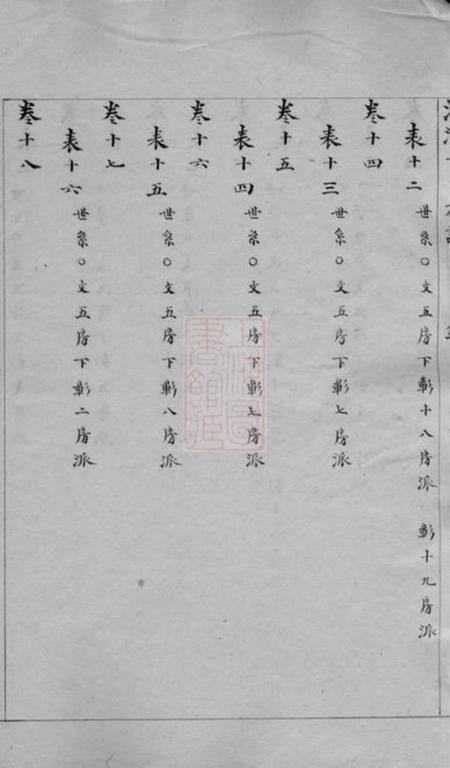 表十二 世系○文五房下彰十八房派 彰十九房派
卷十四
表十三 世系○文五房下彰七房派
卷十五
表十四 世系○文五房下彰七房派
卷十六
表十五 世系○文五房下彰八房派
卷十七
表十六 世系○文五房下彰二房派
卷十八